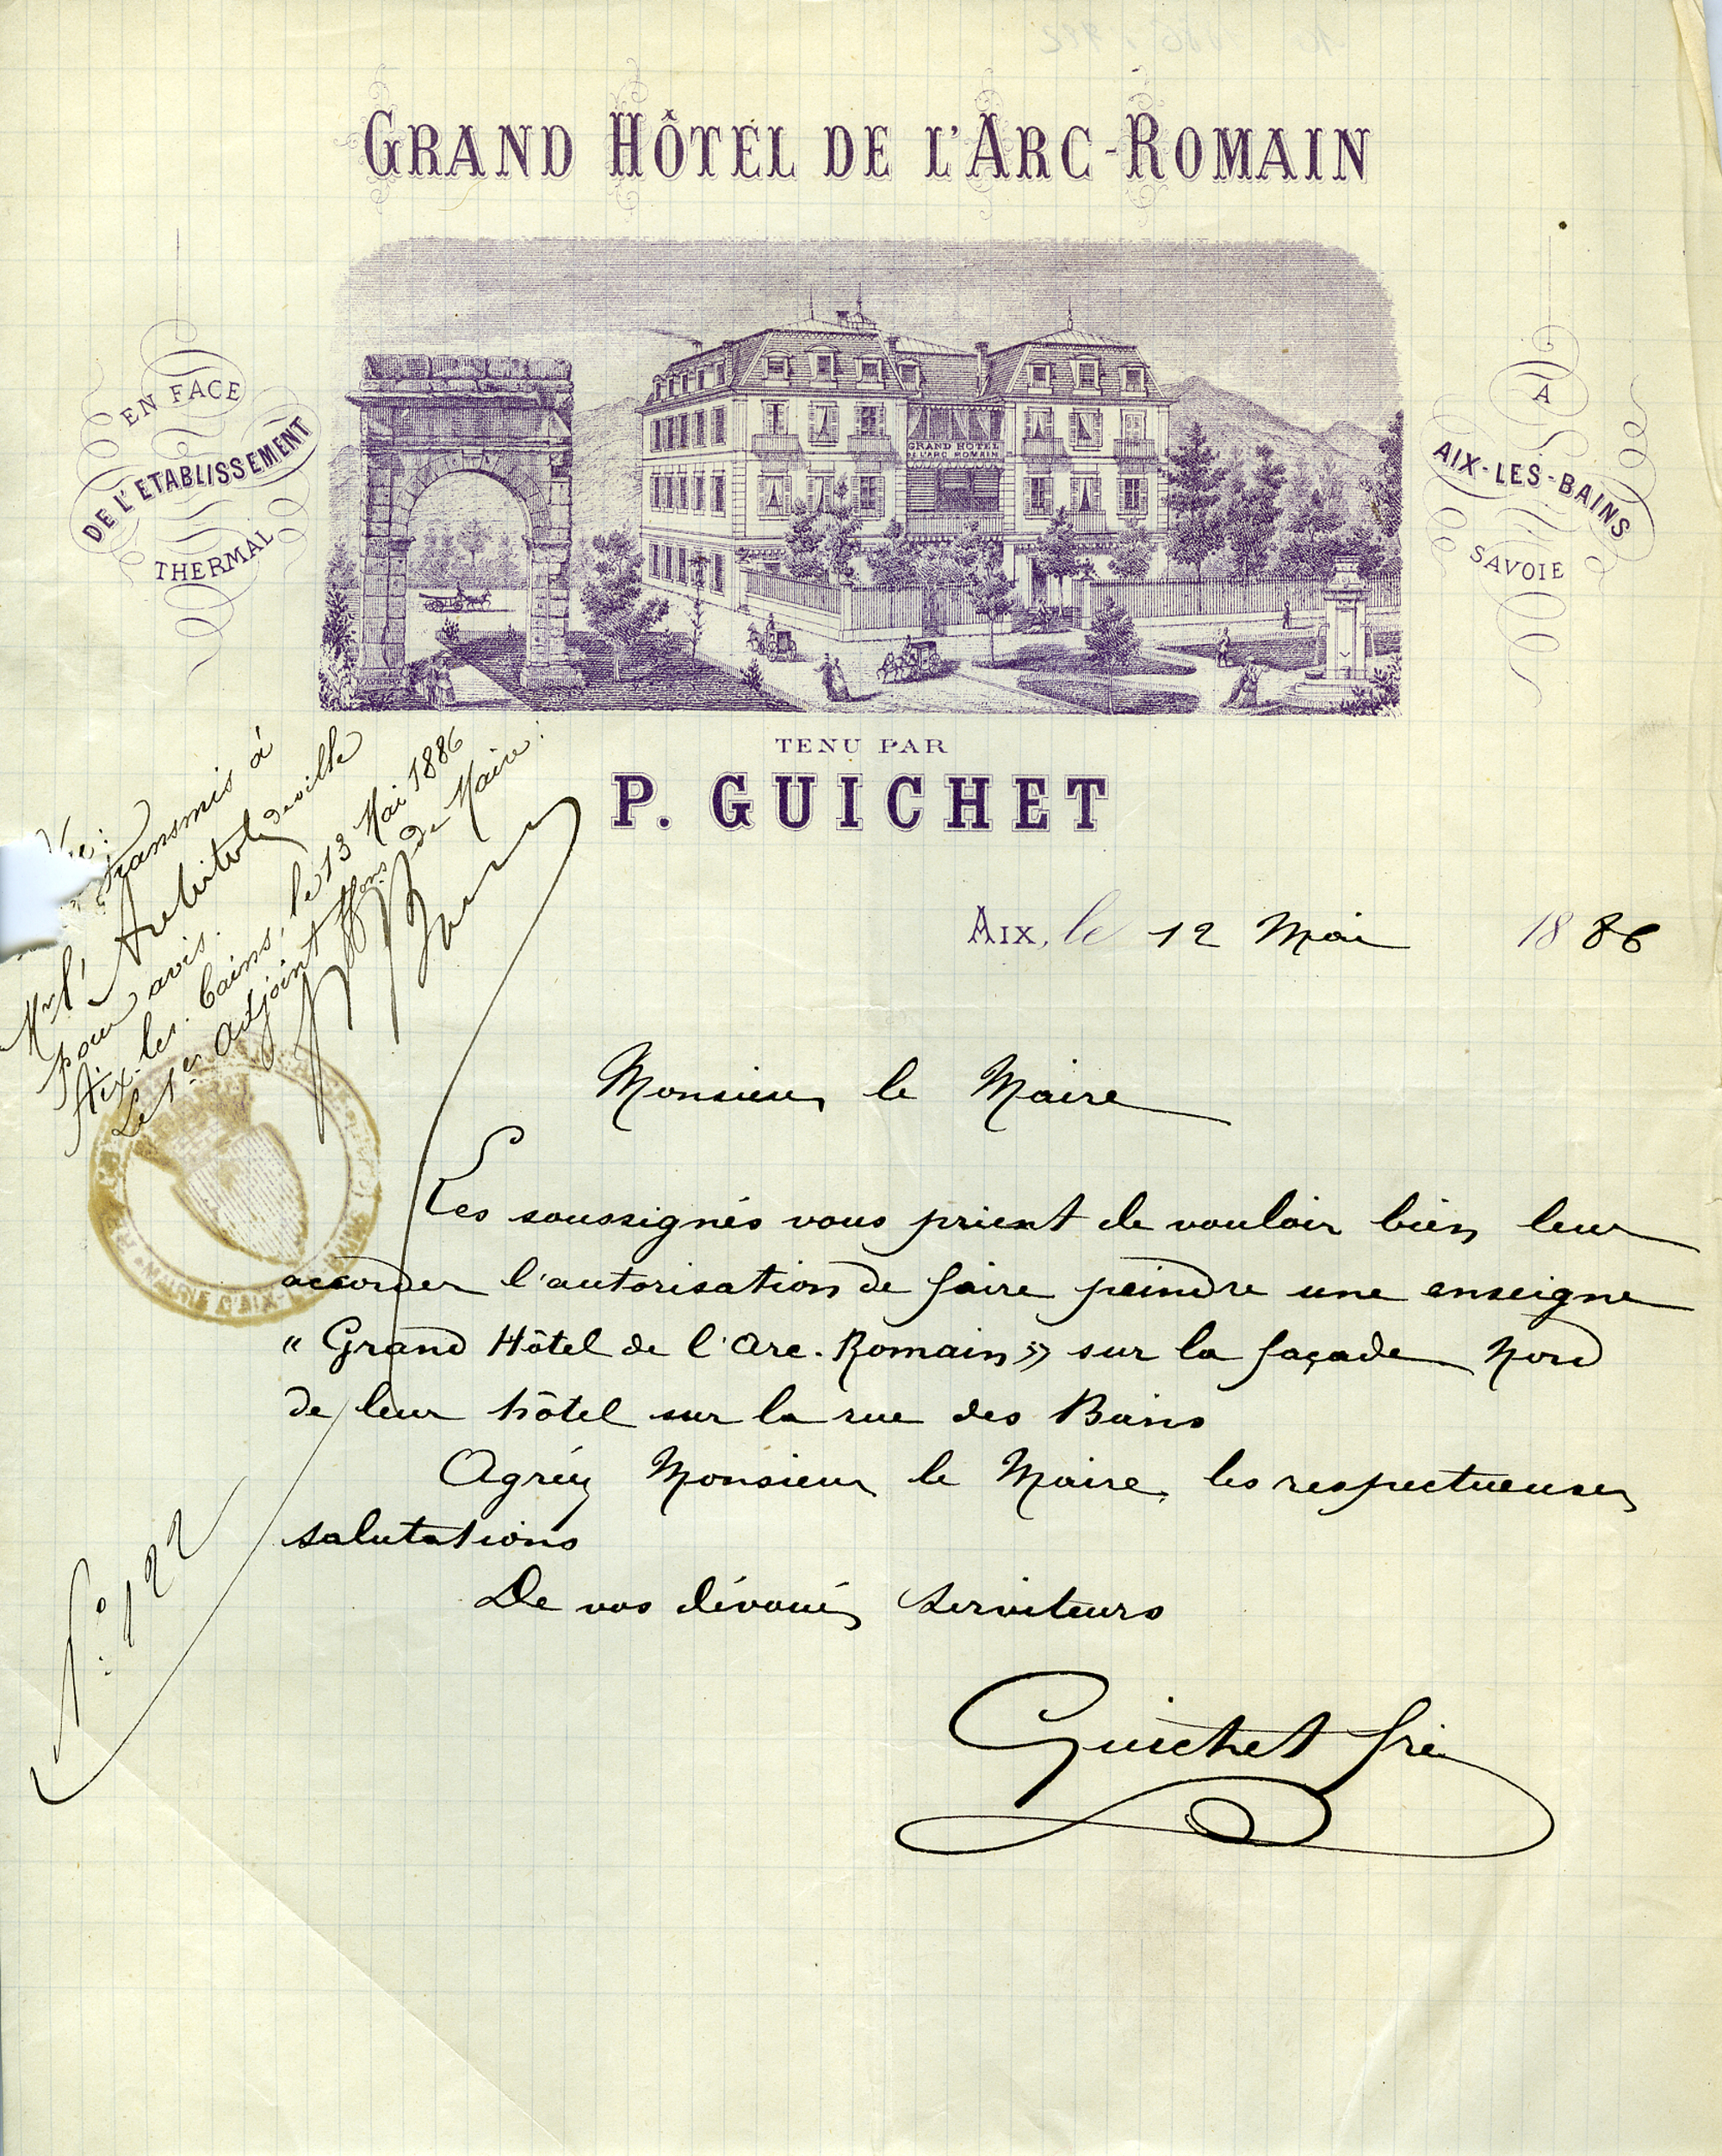 GRAND HÔTEL DE L'ARC-ROMAIN
EN FACE
DE L'ETABLISSEMENT
THERMAL
GRAND HOTEL
DE L'ARC ROMAIN
A
AIX-LES-BAINS
SAVOIE
TENU PAR
P. GUICHET
Transmis à
Mr l'Architecte de ville
pour avis.
Aix-les-bains, le 13 Mai 1886
Le 1er Adjoint ffons de Maire:
AIX, le 12 Mai 1886
Monsieur le Maire
Les soussignés vous prient de vouloir bien leur
accorder l'autorisation de faire peindre une enseigne
« Grand Hôtel de l'Arc-Romain » sur la façade Nord
de leur hôtel sur la rue des Bains
Agréez Monsieur le Maire, les respectueuses
salutations
De vos dévoués serviteurs
Guichet
MAIRIE D'AIX-LES-BAINS
No: 122